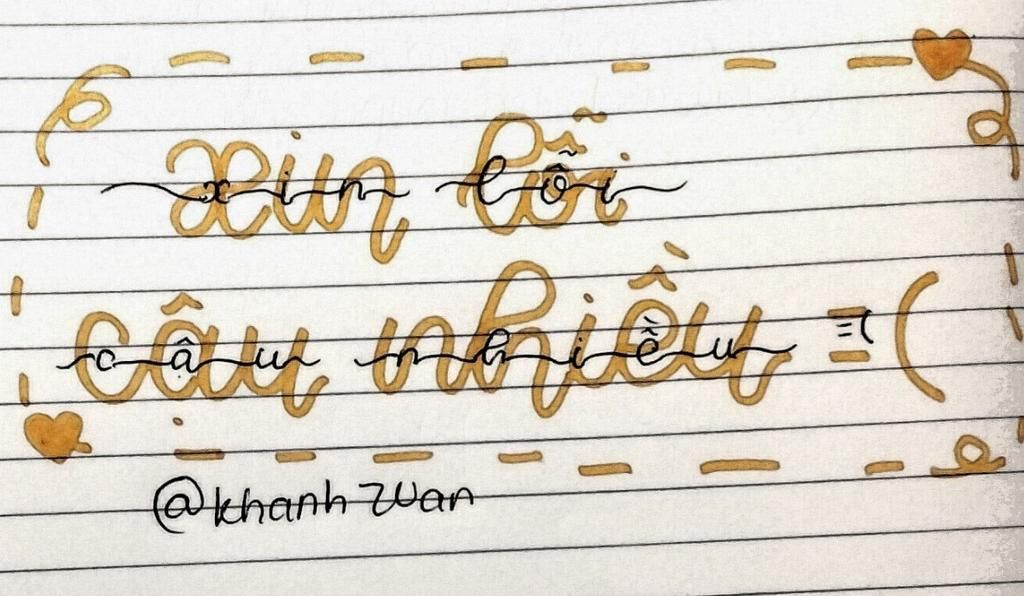 xin lỗi
cậu nhiều =(
@khanhzuan